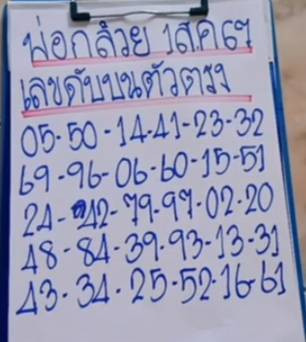 พ่อกล้วย 1ส.ค69
เลขดับบนตัวตรง
05-50-14-41-23-32
69-96-06-60-15-51
24-42-79-97-02-20
48-84-39-93-13-31
43-34-25-52-16-61